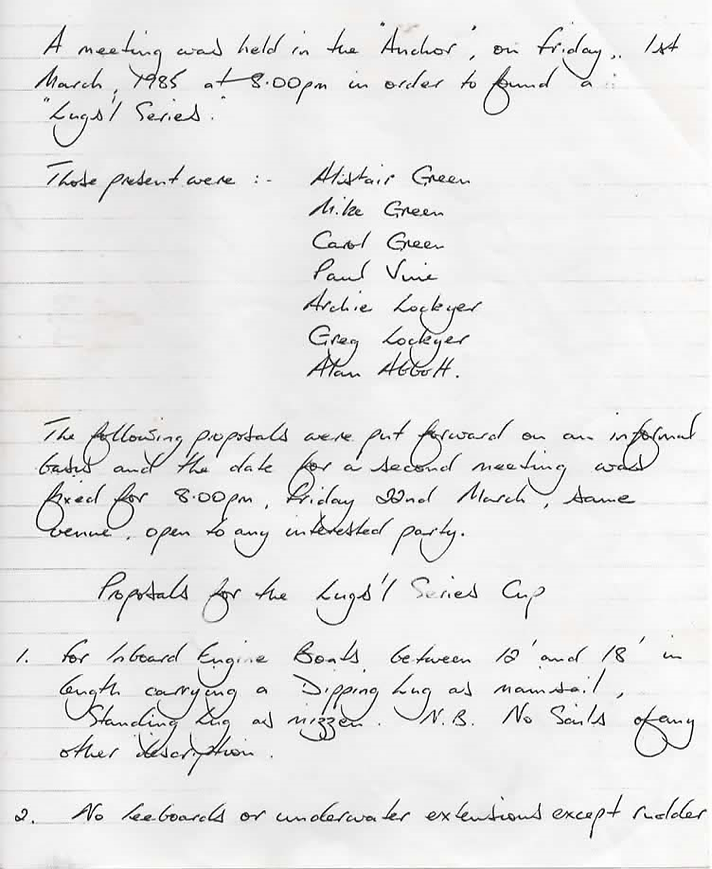 A meeting was held in the "Anchor", on Friday, 1st
March, 1985 at 8.00pm in order to found a
"Lugs'l Series."
Those present were :-
Alistair Green
Mike Green
Carol Green
Paul Vine
Archie Lockyer
Greg Lockyer
Alan Abbott.
The following proposals were put forward on an informal
basis and the date for a second meeting was
fixed for 8.00pm, Friday 22nd March, same
venue, open to any interested party.
Proposals for the Lugs'l Series Cup
1. For Inboard Engine Boats, between 12' and 18' in
length carrying a Dipping Lug as mainsail,
Standing Lug as mizzen. N.B. No Sails of any
other description.
2. No leeboards or underwater extensions except rudder